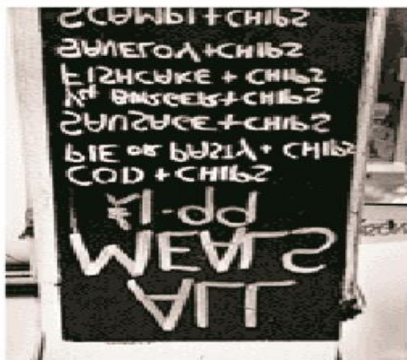 ALL
MEALS
£1-99
COD + CHIPS
PIE OR PASTY + CHIPS
SAUSAGE + CHIPS
BURGER + CHIPS
FISHCAKE + CHIPS
SAVELOY + CHIPS
SCAMPI + CHIPS